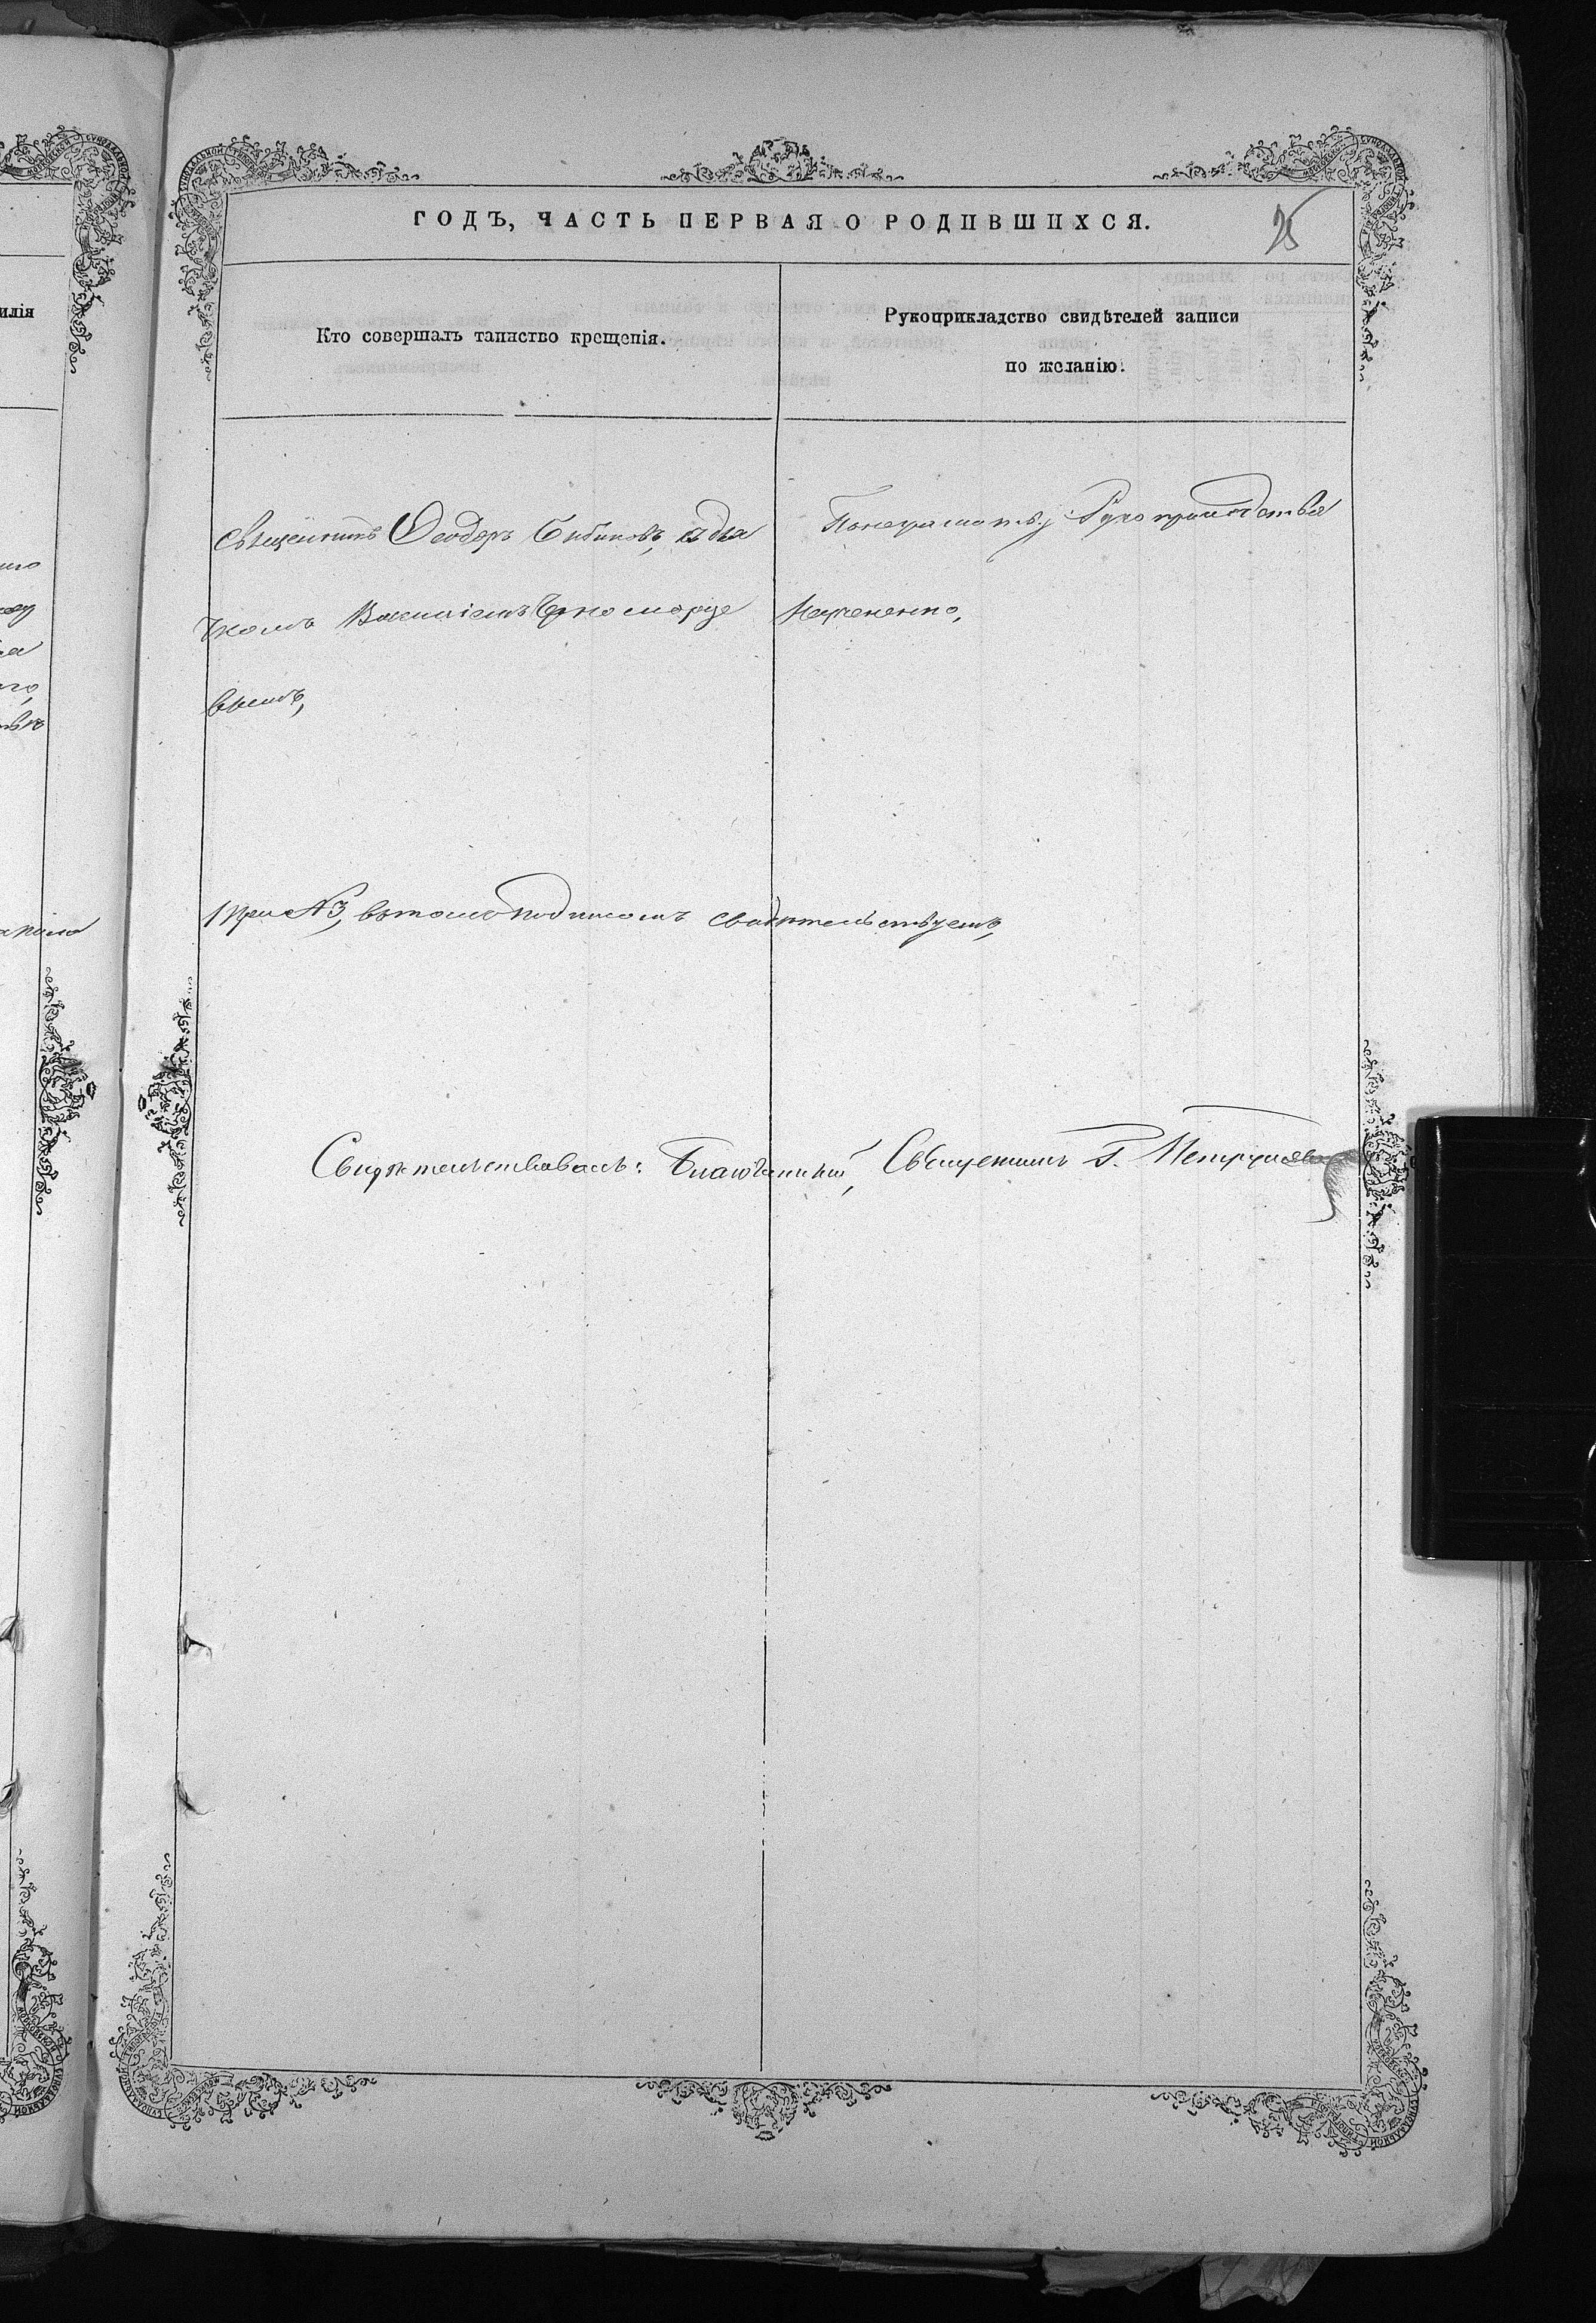 ГОДЪ, ЧАСТЬ ПЕРВАЯ О РОДИВШИХСЯ.
25
илія
Кто совершалъ таинство крещенія.
Рукоприкладство свидѣтелей записи
по желанію.
Священникъ Ѳеодоръ Бибиковъ, съ дья
чкомъ Василіемъ Черноморце
вымъ,
Понеграмотству Рукоприкладства
Неучинено,
въ томъ подписомъ свидѣтельствуемъ,
Свидѣтельствовалъ: Благочинный, Священникъ Г.